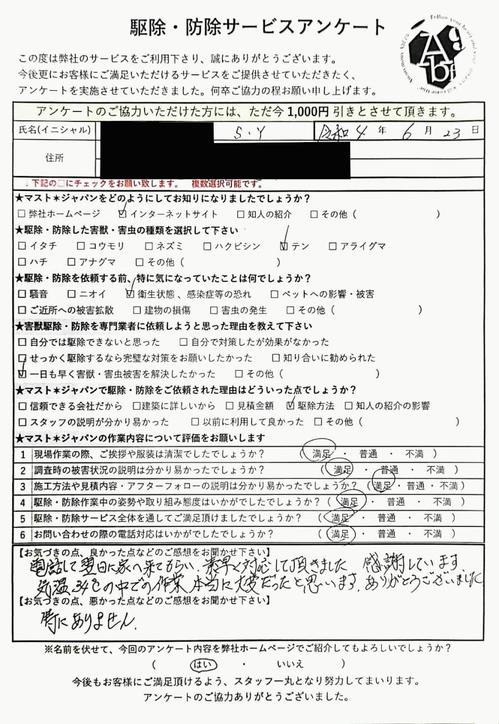 駆除・防除サービスアンケート
この度は弊社のサービスをご利用下さり、誠にありがとうございます。
今後更にお客様にご満足いただけるサービスをご提供させていただきたく、
アンケートを実施させていただきました。何卒ご協力の程お願い申し上げます。
アンケートのご協力いただけた方には、ただ今1,000円引きとさせて頂きます。
氏名(イニシャル) S.Y 令和4年6月23日
住所
↓下記の□にチェックをお願い致します。 複数選択可能です。
★マスト＊ジャパンをどのようにしてお知りになりましたでしょうか?
□弊社ホームページ ☑インターネットサイト □知人の紹介 □その他( )
★駆除・防除した害獣・害虫の種類を選択して下さい
□イタチ □コウモリ □ネズミ □ハクビシン ☑テン □アライグマ
□ハチ □アナグマ □その他( )
★駆除・防除を依頼する前、特に気になっていたことは何でしょうか?
□騒音 □ニオイ ☑衛生状態、感染症等の恐れ □ペットへの影響・被害
□ご近所への被害拡散 □建物の損傷 □害虫の発生 □その他( )
★害獣駆除・防除を専門業者に依頼しようと思った理由を教えて下さい
□自分では駆除できないと思った □自分で対策したが効果がなかった
☑せっかく駆除するなら完璧な対策をお願いしたかった □知り合いに勧められた
☑一日も早く害獣・害虫被害を解決したかった □その他( )
★マスト＊ジャパンで駆除・防除をご依頼された理由はどういった点でしょうか?
□信頼できる会社だから □建築に詳しいから □見積金額 ☑駆除方法 □知人の紹介の影響
□スタッフの説明が分かり易かった □以前に利用して良かった □その他( )
★マスト＊ジャパンの作業内容について評価をお願いします
1 現場作業の際、ご挨拶や服装は清潔でしたでしょうか? (満足・普通・不満)
2 調査時の被害状況の説明は分かり易かったでしょうか? (満足・普通・不満)
3 施工方法や見積内容・アフターフォローの説明は分かり易かったでしょうか?(満足・普通・不満)
4 駆除・防除作業中の姿勢や取り組み態度はいかがでしたでしょうか? (満足・普通・不満)
5 駆除・防除サービス全体を通してご満足頂けましたでしょうか? (満足・普通・不満)
6 お問い合わせの際の電話対応はいかがでしたでしょうか? (満足・普通・不満)
【お気づきの点、良かった点などのご感想をお聞かせ下さい】
電話して翌日に家へ来てもらい、素早く対応して頂きました 感謝しています。
気温34℃の中での作業 本当に大変だったと思います。ありがとうございました
【お気づきの点、悪かった点などのご感想をお聞かせ下さい】
特にありません。
※名前を伏せて、今回のアンケート内容を弊社ホームページでご紹介してもよろしいでしょうか?
( はい ・ いいえ )
今後もお客様にご満足頂けるよう、スタッフ一丸となり努力してまいります。
アンケートのご協力ありがとうございました。